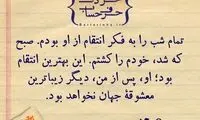 حرف حساب
تمام شب را به فکر انتقام از او بودم. صبح
که شد، خودم را کشتم. این بهترین انتقام
بود؛ او، پس از من، دیگر زیباترین
معشوقهٔ جهان نخواهد بود.